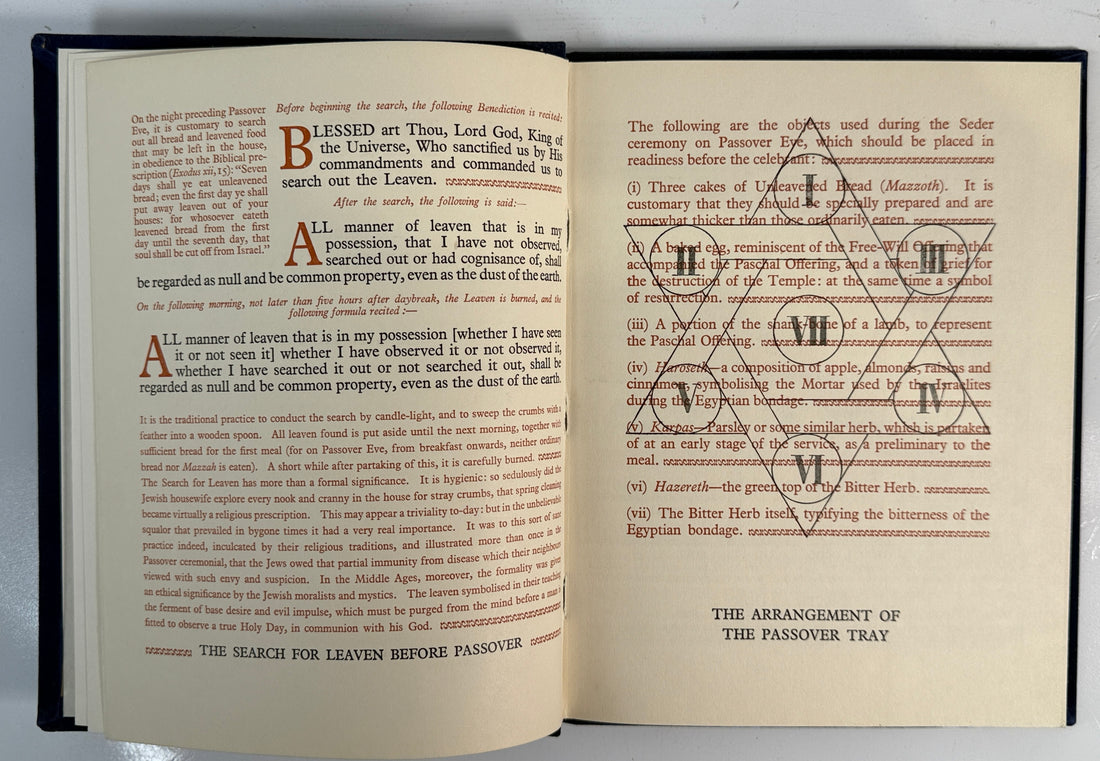 On the night preceding Passover
Eve, it is customary to search
out all bread and leavened food
that may be left in the house,
in obedience to the Biblical pre-
scription (Exodus xii, 15): "Seven
days shall ye eat unleavened
bread; even the first day ye shall
put away leaven out of your
houses: for whosoever eateth
leavened bread from the first
day until the seventh day, that
soul shall be cut off from Israel."
Before beginning the search, the following Benediction is recited:
BLESSED art Thou, Lord God, King of
the Universe, Who sanctified us by His
commandments and commanded us to
search out the Leaven.
After the search, the following is said:—
ALL manner of leaven that is in my
possession, that I have not observed,
searched out or had cognisance of, shall
be regarded as null and be common property, even as the dust of the earth.
On the following morning, not later than five hours after daybreak, the Leaven is burned, and the
following formula recited:—
ALL manner of leaven that is in my possession [whether I have seen
it or not seen it] whether I have observed it or not observed it,
whether I have searched it out or not searched it out, shall be
regarded as null and be common property, even as the dust of the earth.
It is the traditional practice to conduct the search by candle-light, and to sweep the crumbs with a
feather into a wooden spoon. All leaven found is put aside until the next morning, together with
sufficient bread for the first meal (for on Passover Eve, from breakfast onwards, neither ordinary
bread nor Mazzah is eaten). A short while after partaking of this, it is carefully burned.
The Search for Leaven has more than a formal significance. It is hygienic: so sedulously did the
Jewish housewife explore every nook and cranny in the house for stray crumbs, that spring cleaning
became virtually a religious prescription. This may appear a triviality to-day: but in the unbelievable
squalor that prevailed in bygone times it had a very real importance. It was to this sort of sane
practice indeed, inculcated by their religious traditions, and illustrated more than once in the
Passover ceremonial, that the Jews owed that partial immunity from disease which their neighbours
viewed with such envy and suspicion. In the Middle Ages, moreover, the formality was given
an ethical significance by the Jewish moralists and mystics. The leaven symbolised in their teaching
the ferment of base desire and evil impulse, which must be purged from the mind before a man is
fitted to observe a true Holy Day, in communion with his God.
THE SEARCH FOR LEAVEN BEFORE PASSOVER
The following are the objects used during the Seder
ceremony on Passover Eve, which should be placed in
readiness before the celebrant:
(i) Three cakes of Unleavened Bread (Mazzoth). It is
customary that they should be specially prepared and are
somewhat thicker than those ordinarily eaten.
(ii) A baked egg, reminiscent of the Free-Will Offering that
accompanied the Paschal Offering, and a token of grief for
the destruction of the Temple: at the same time a symbol
of resurrection.
(iii) A portion of the shank-bone of a lamb, to represent
the Paschal Offering.
(iv) Haroseth—a composition of apple, almonds, raisins and
cinnamon, symbolising the Mortar used by the Israelites
during the Egyptian bondage.
(v) Karpas—Parsley or some similar herb, which is partaken
of at an early stage of the service, as a preliminary to the
meal.
(vi) Hazereth—the green top of the Bitter Herb.
(vii) The Bitter Herb itself, typifying the bitterness of the
Egyptian bondage.
I
II
III
VII
V
IV
VI
THE ARRANGEMENT OF
THE PASSOVER TRAY